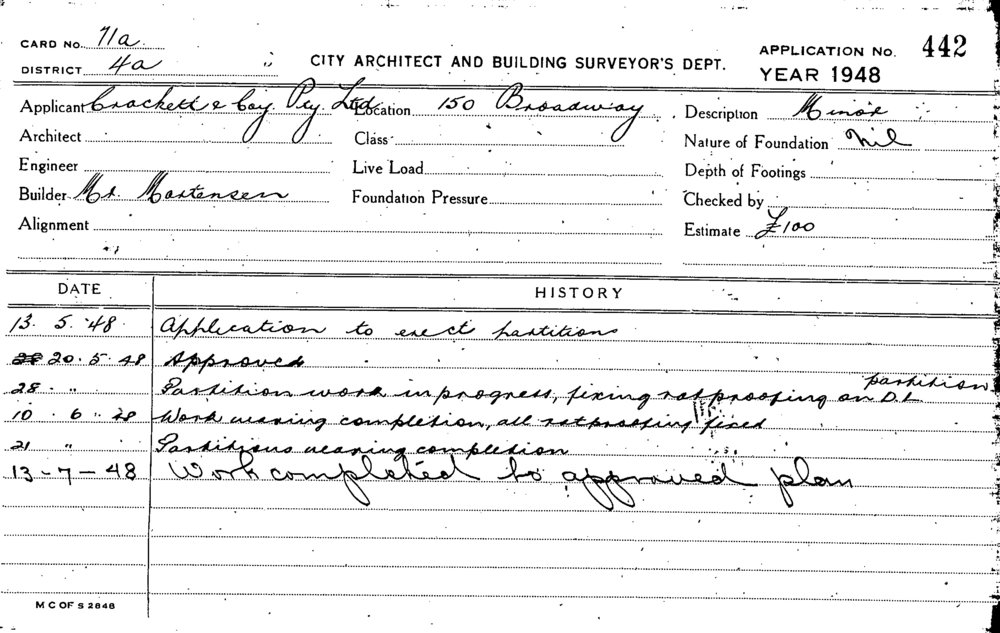 CARD No. 71a.
DISTRICT 4a
CITY ARCHITECT AND BUILDING SURVEYOR'S DEPT.
APPLICATION No. 442
YEAR 1948
Applicant Crockett & Coy. Pty. Ltd.
Location 150 Broadway
Description Minor
Architect
Class
Nature of Foundation Nil
Engineer
Live Load
Depth of Footings
Builder Mr. Mortensen
Foundation Pressure
Checked by
Alignment
Estimate £100
DATE HISTORY
13. 5. 48. Application to erect partitions
20. 5. 48 Approved
28. " Partition work in progress, fixing ratproofing on D.L. partition
10. 6. 48 Work nearing completion, all ratproofing fixed
21 " Partitions nearing completion
13-7-48 Work completed to approved plan
M C OF S 2848